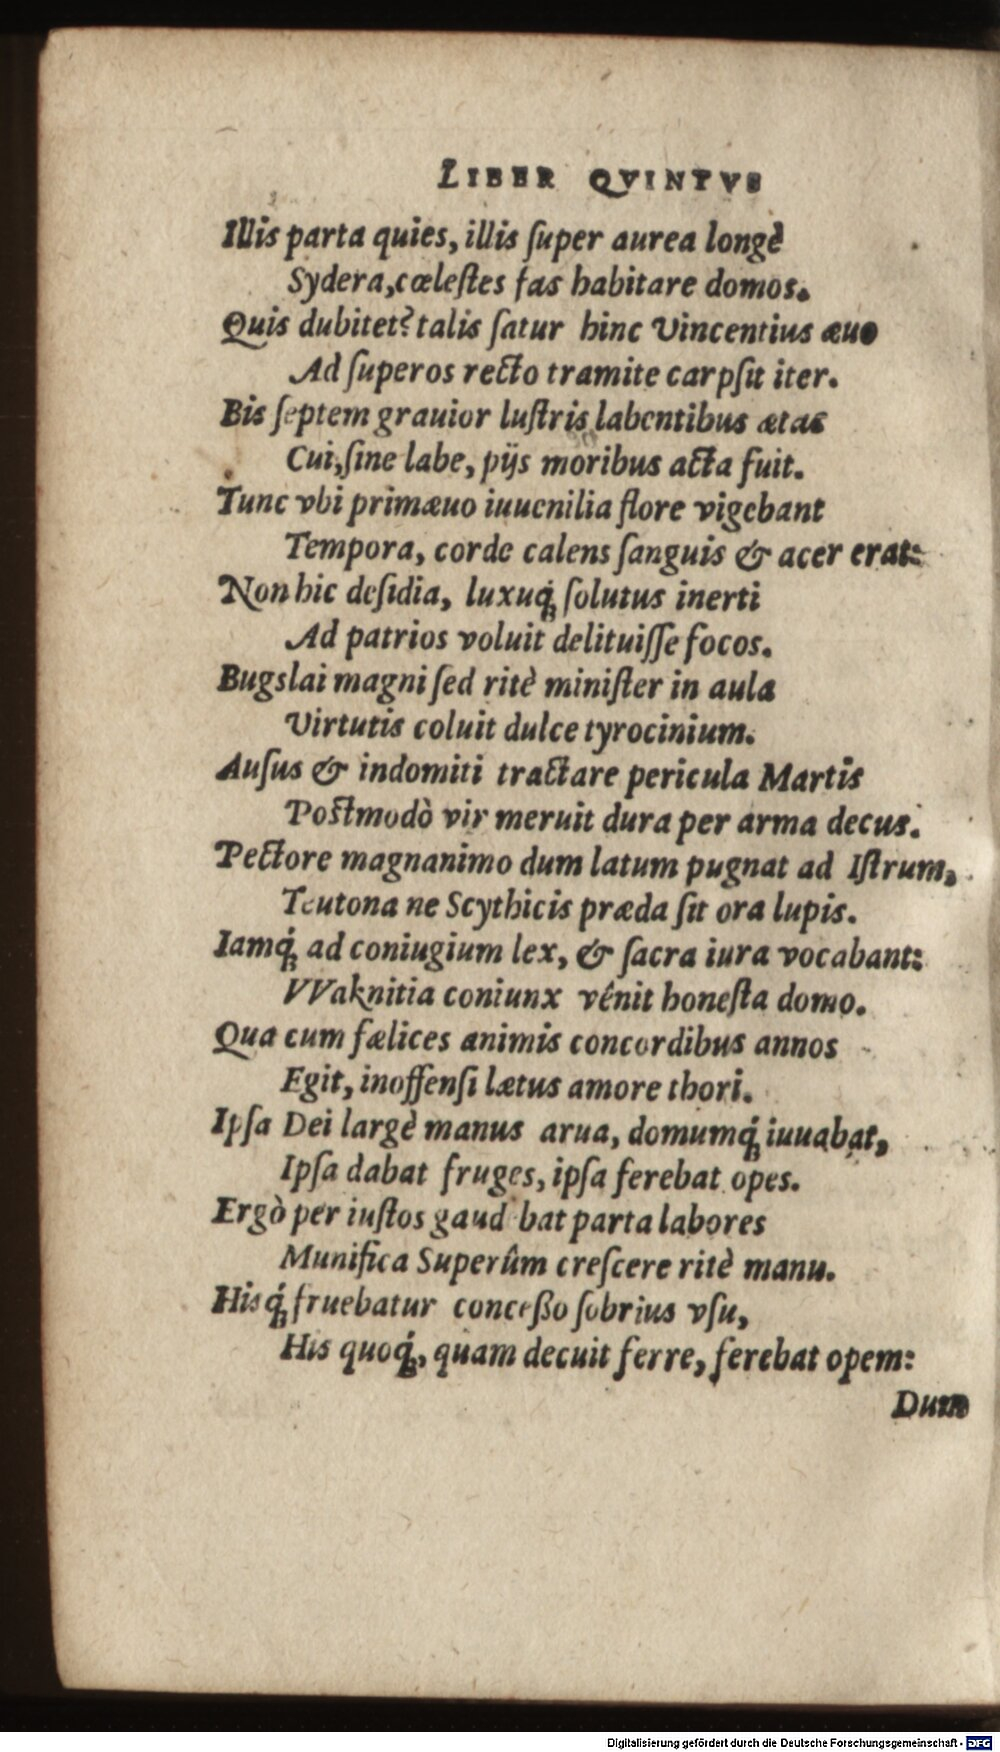 LIBER QVINTVS
Illis parta quies, illis ſuper aurea longè
Sydera,cœleſtes fas habitare domos.
Quis dubitet? talis ſatur hinc Vincentius æuo
Ad ſuperos recto tramite carpſit iter.
Bis ſeptem grauior luſtris labentibus ætas
Cui,ſine labe, pijs moribus acta fuit.
Tunc vbi primæuo iuuenilia flore vigebant
Tempora, corde calens ſanguis & acer erat:
Non hic deſidia, luxuq́; ſolutus inerti
Ad patrios voluit delituiſſe focos.
Bugslai magni ſed ritè miniſter in aula
Virtutis coluit dulce tyrocinium.
Auſus & indomiti tractare pericula Martis
Poſtmodò vir meruit dura per arma decus.
Pectore magnanimo dum latum pugnat ad Iſtrum,
Teutona ne Scythicis præda ſit ora lupis.
Iamq́; ad coniugium lex, & ſacra iura vocabant:
VVaknitia coniunx vênit honeſta domo.
Qua cum fælices animis concordibus annos
Egit, inoffenſi lætus amore thori.
Ipſa Dei largè manus arua, domumq́; iuuabat,
Ipſa dabat fruges, ipſa ferebat opes.
Ergò per iuſtos gaud bat parta labores
Munifica Superûm creſcere ritè manu.
Hisq́; fruebatur conceßo ſobrius vſu,
His quoq́;, quam decuit ferre, ferebat opem:
Dum
Digitalisierung gefördert durch die Deutsche Forschungsgemeinschaft - DFG